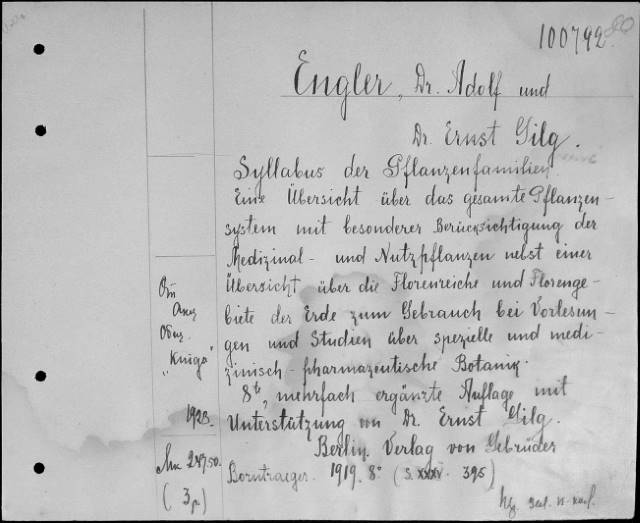 100792
Engler, Dr. Adolf und
Dr. Ernst Gilg.
Syllabus der Pflanzenfamilien.
Eine Übersicht über das gesamte Pflanzen-
system mit besonderer Berücksichtigung der
Medizinal- und Nutzpflanzen nebst einer
Übersicht über die Florenreiche und Florenge-
biete der Erde zum Gebrauch bei Vorlesun-
gen und Studien über spezielle und medi-
zinisch-pharmazeutische Botanik.
8te, mehrfach ergänzte Auflage mit
Unterstützung von Dr. Ernst Gilg.
Berlin. Verlag von Gebrüder
Borntraeger. 1919. 8° (S. XXXV. 395)
"Книга"
1923.
247.50.
(3 р.)